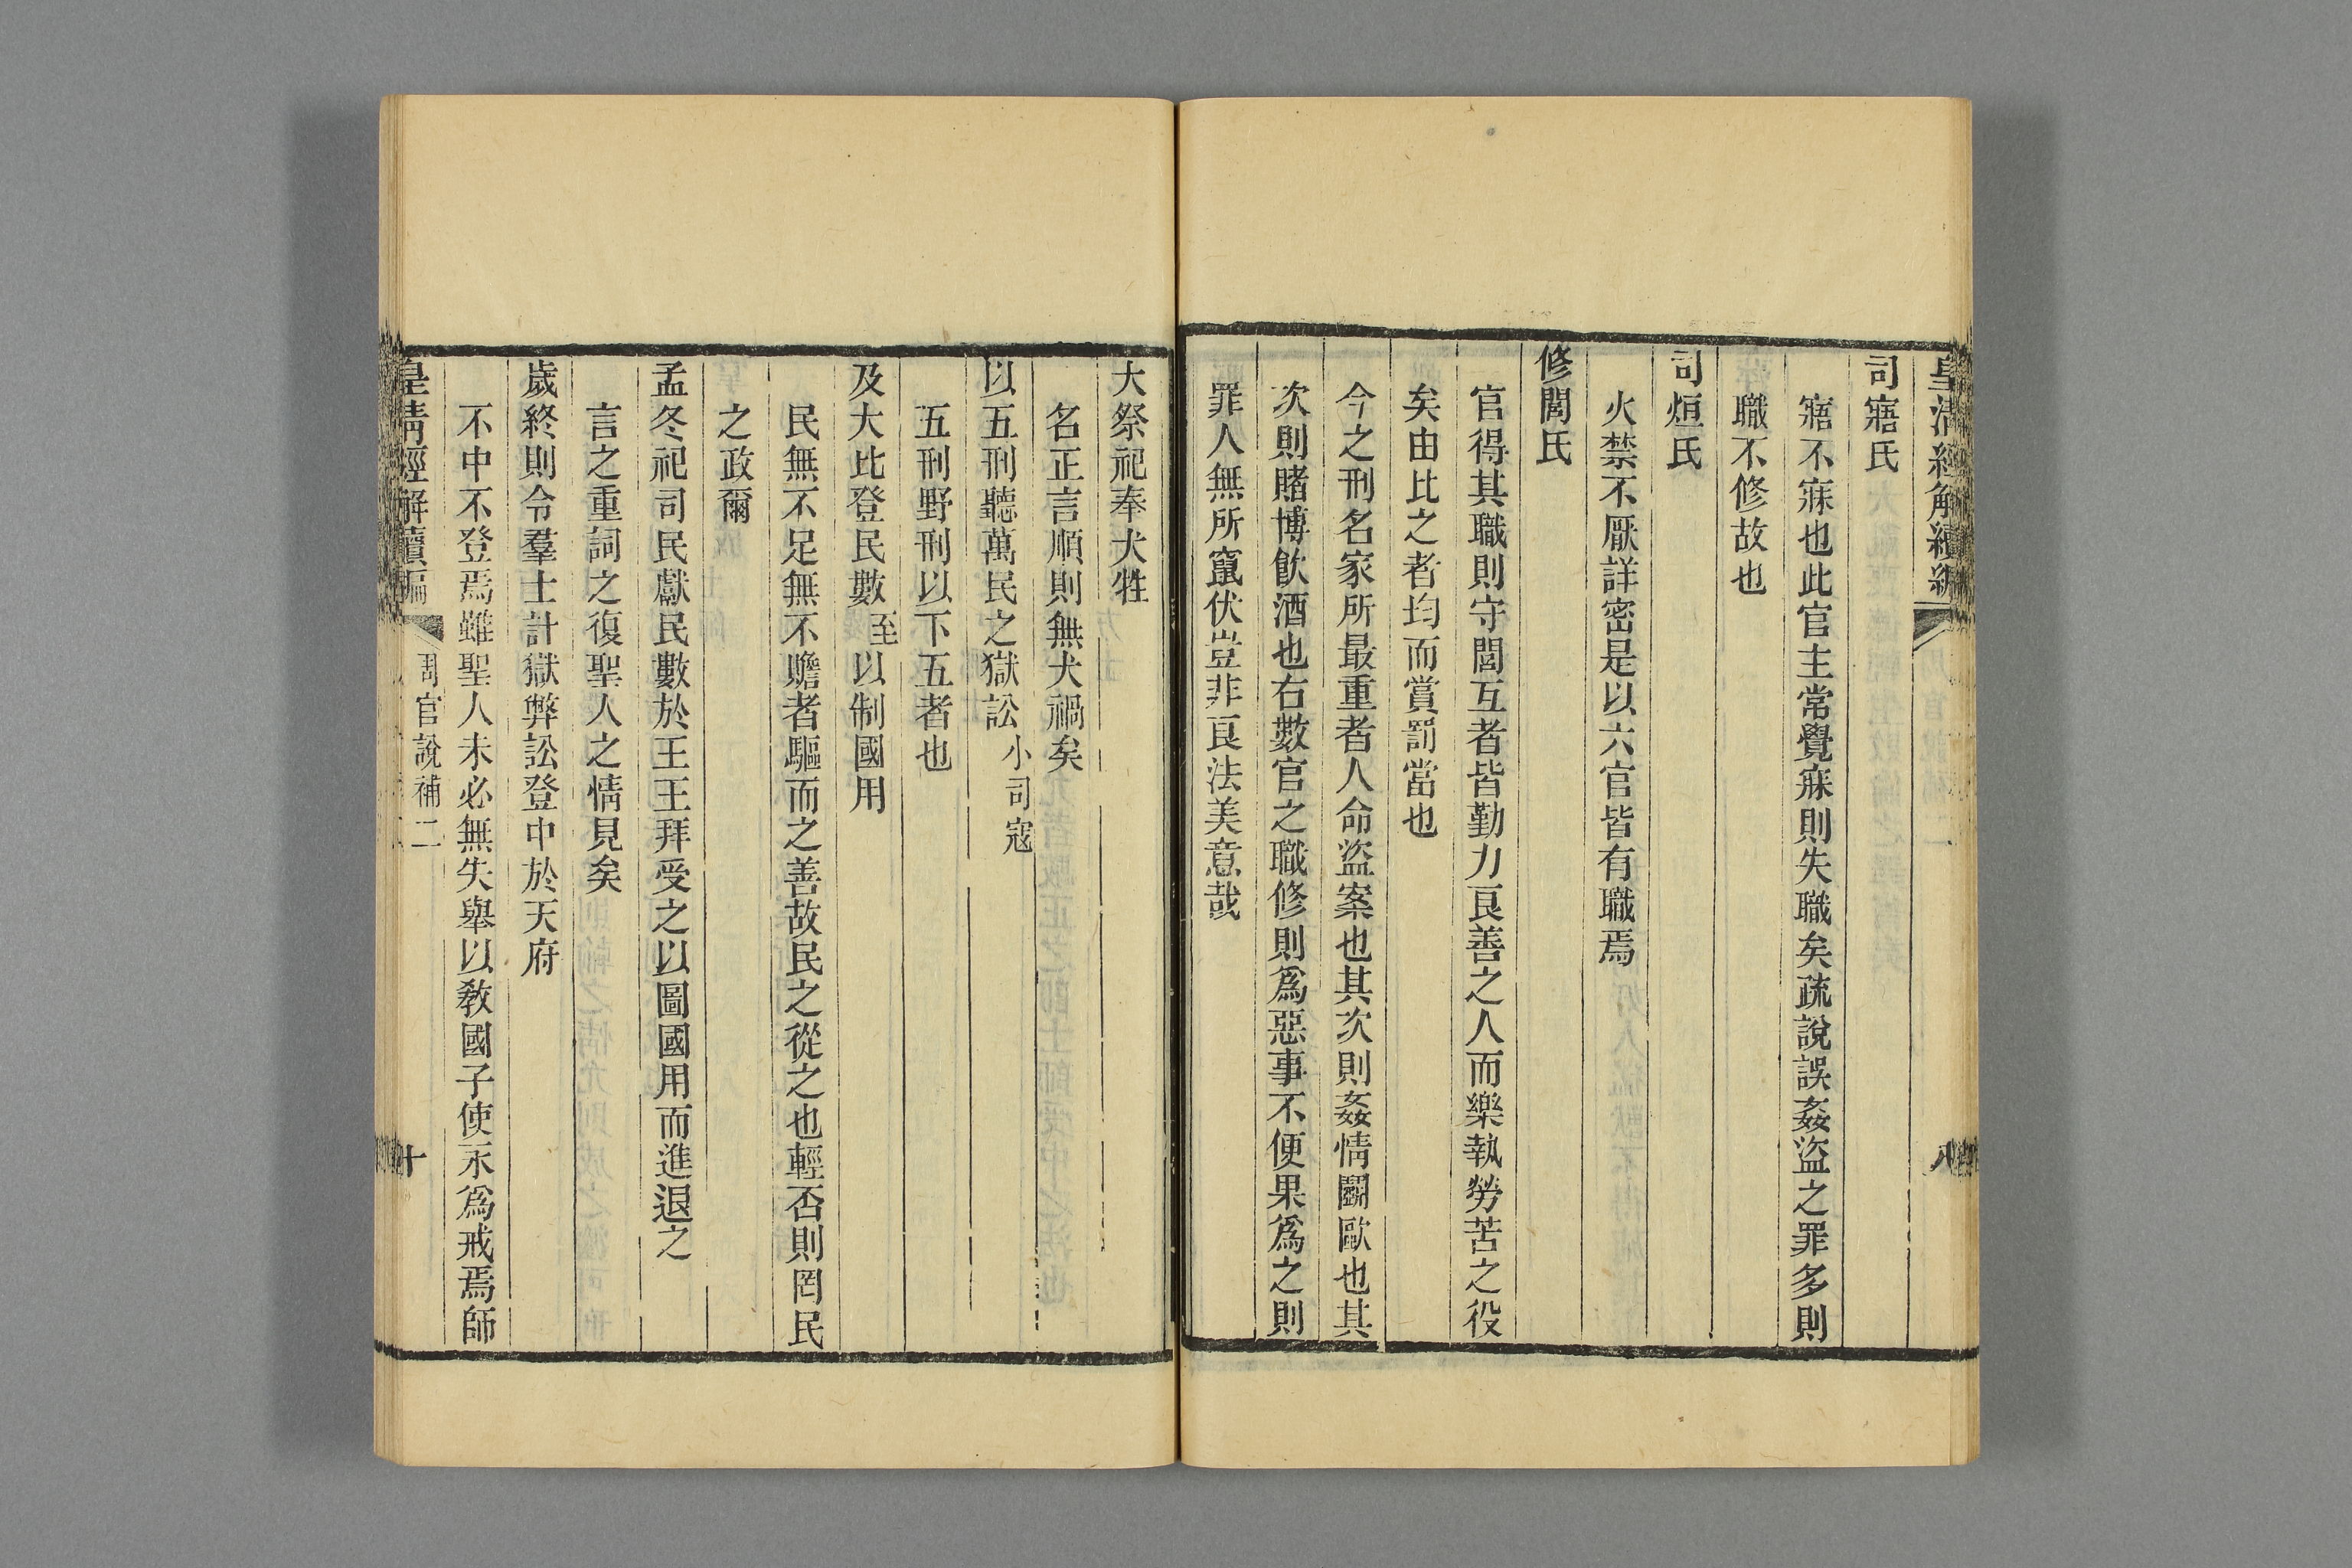 皇清經解續編
八
司寤氏
寤不寐也此官主常覺寐則失職矣疏說誤姦盜之罪多則
職不修故也
司烜氏
火禁不厭詳密是以六官皆有職焉
修閭氏
官得其職則守閭互者皆勤力良善之人而樂執勞苦之役
矣由比之者均而賞罰當也
今之刑名家所最重者人命盜案也其次則姦情鬬毆也其
次則賭博飲酒也右數官之職修則為惡事不便果為之則
罪人無所竄伏豈非良法美意哉
大祭祀奉犬牲
名正言順則無犬禍矣
以五刑聽萬民之獄訟小司寇
五刑野刑以下五者也
及大比登民數至以制國用
民無不足無不贍者驅而之善故民之從之也輕否則罔民
之政爾
孟冬祀司民獻民數於王王拜受之以圖國用而進退之
言之重詞之復聖人之情見矣
歲終則令羣士計獄弊訟登中於天府
不中不登焉雖聖人未必無失舉以敎國子使永為戒焉師
皇清經解續編
周官說補二
十